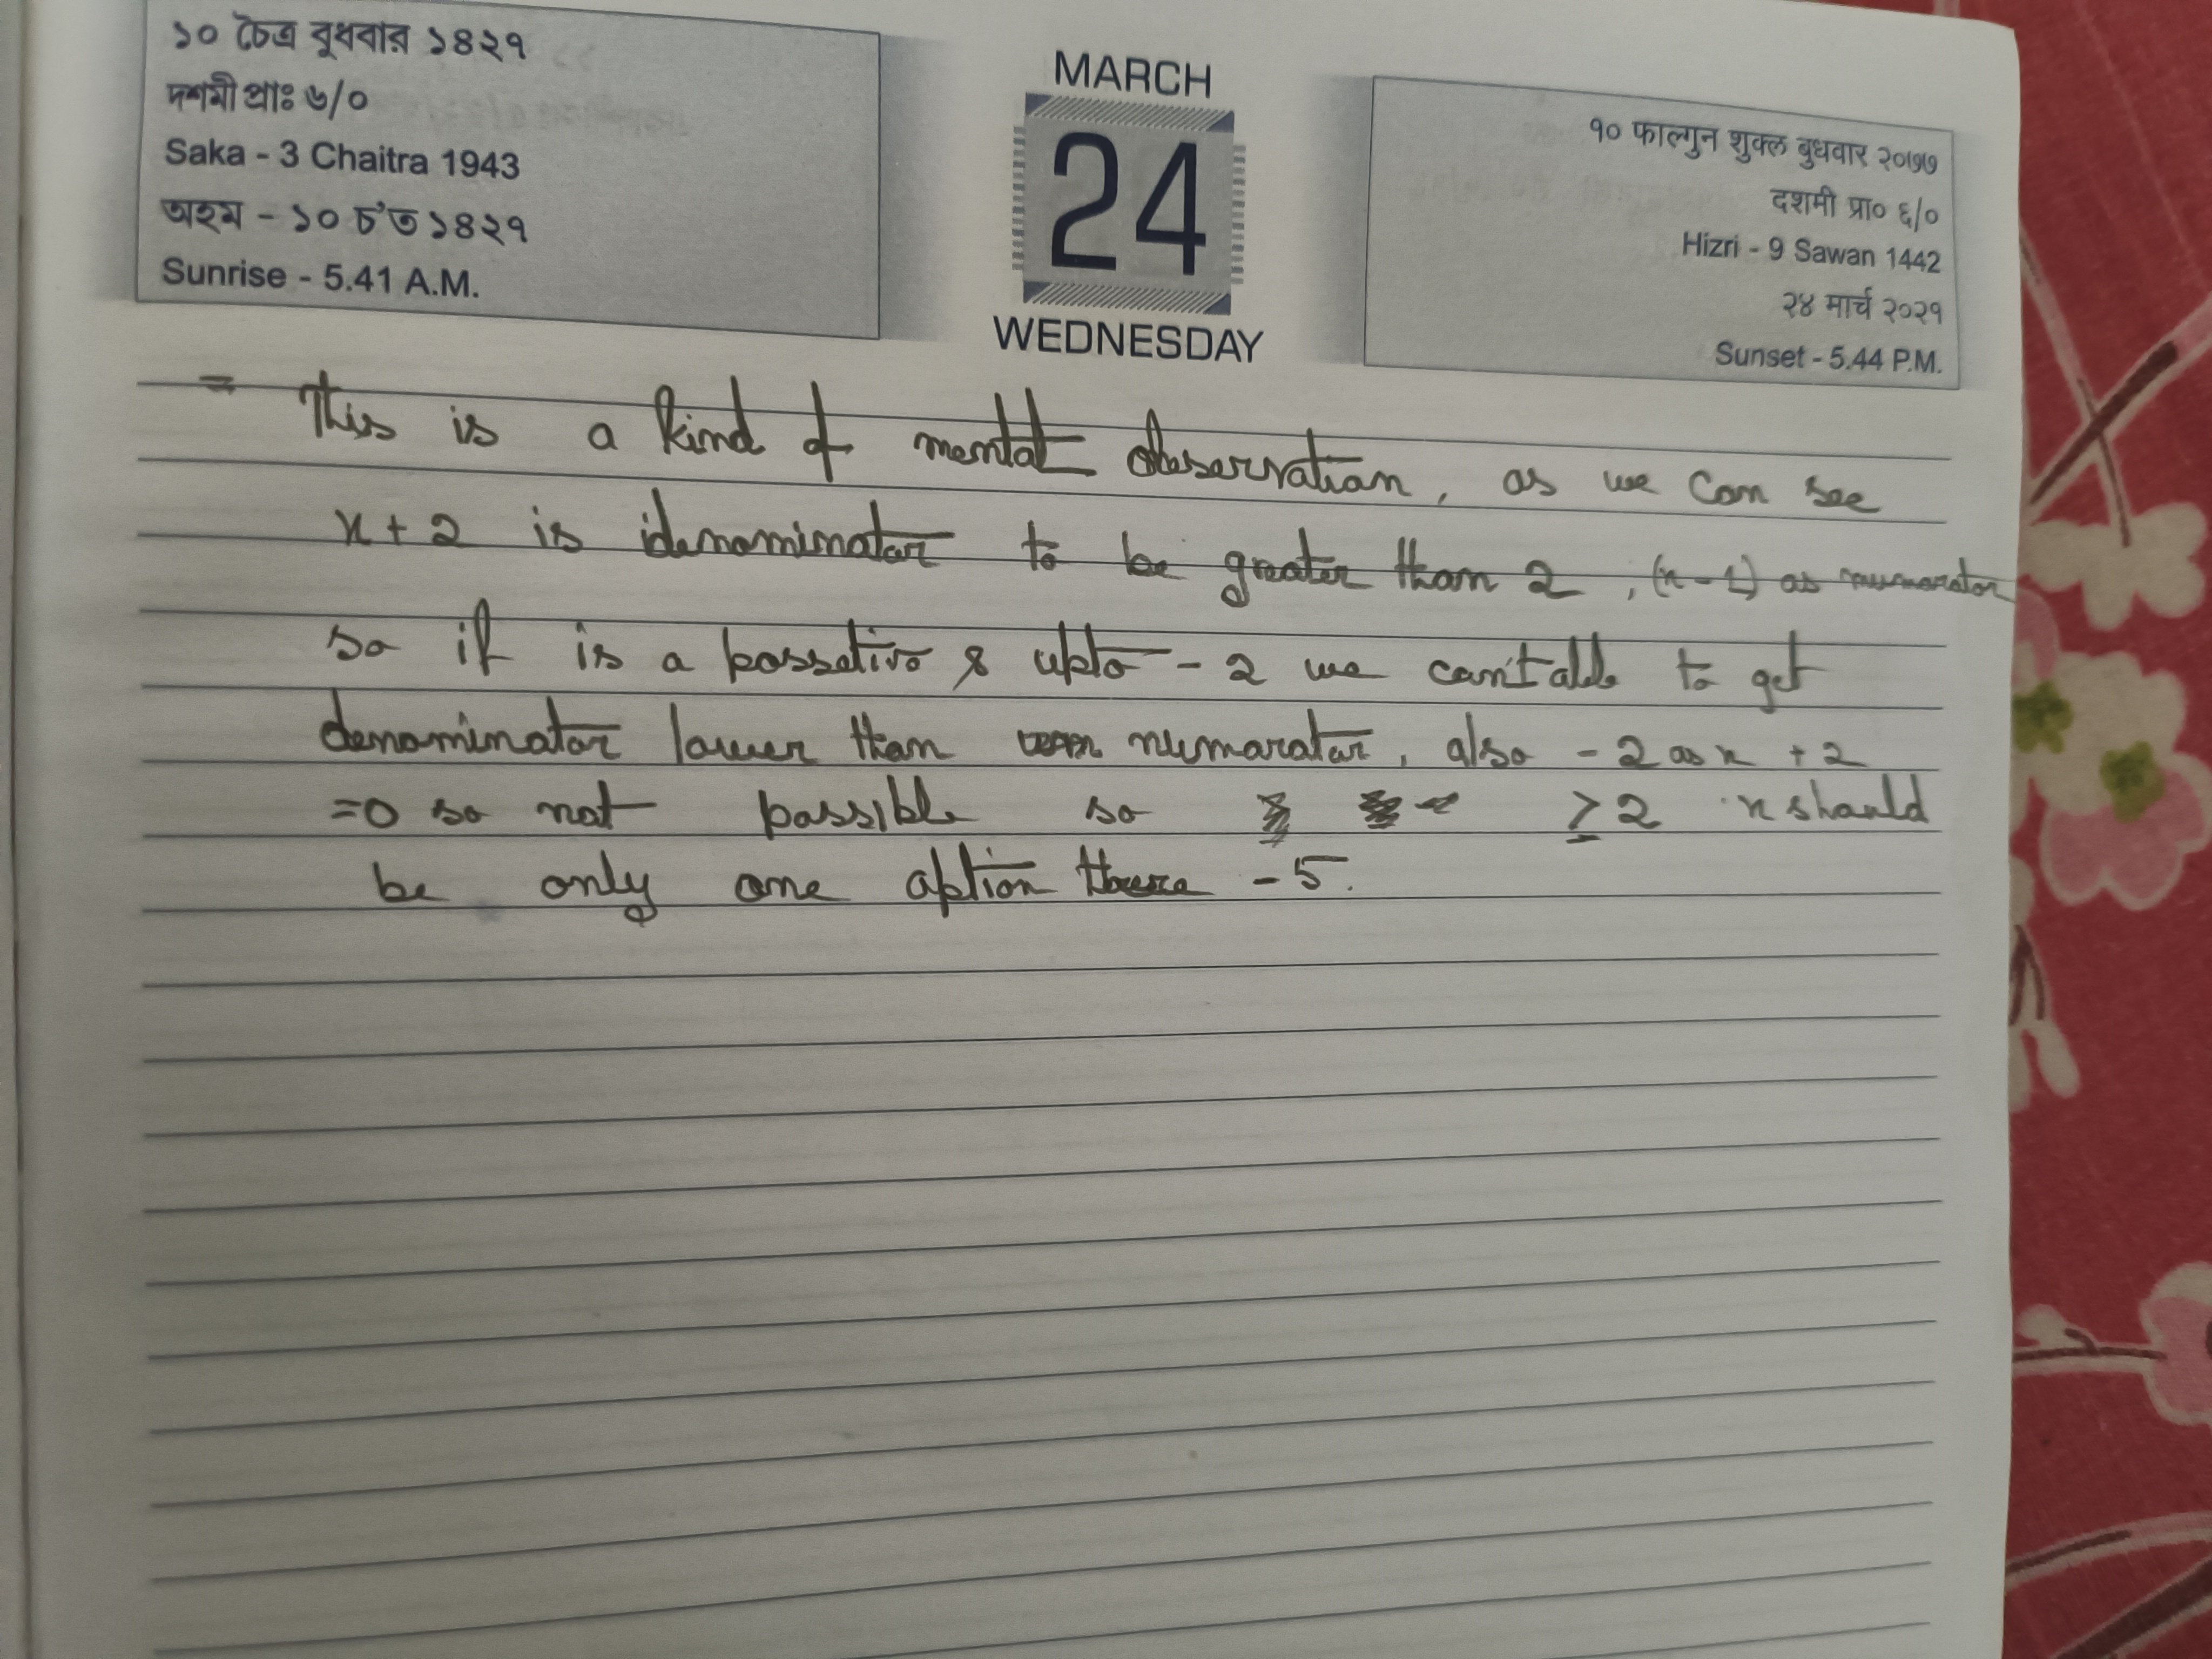 ১০ চৈত্র বুধবার ১৪২৭
দশমী প্রাঃ ৬/০
Saka - 3 Chaitra 1943
অহম - ১০ চ'ত ১৪২৭
Sunrise - 5.41 A.M.
MARCH
24
WEDNESDAY
१० फाल्गुन शुक्ल बुधवार २०७७
दशमी प्रा० ६/०
Hizri - 9 Sawan 1442
२४ मार्च २०२१
Sunset - 5.44 P.M.
= This is a kind of mental observation, as we can see
x + 2 is denominator to be greater than 2, (x - 1) as numarator
so if is a possetive & upto - 2 we can't able to get
denominator lower than numarator, also - 2 as x + 2
= 0 so not possible so ≥ 2 x should
be only one option there - 5.